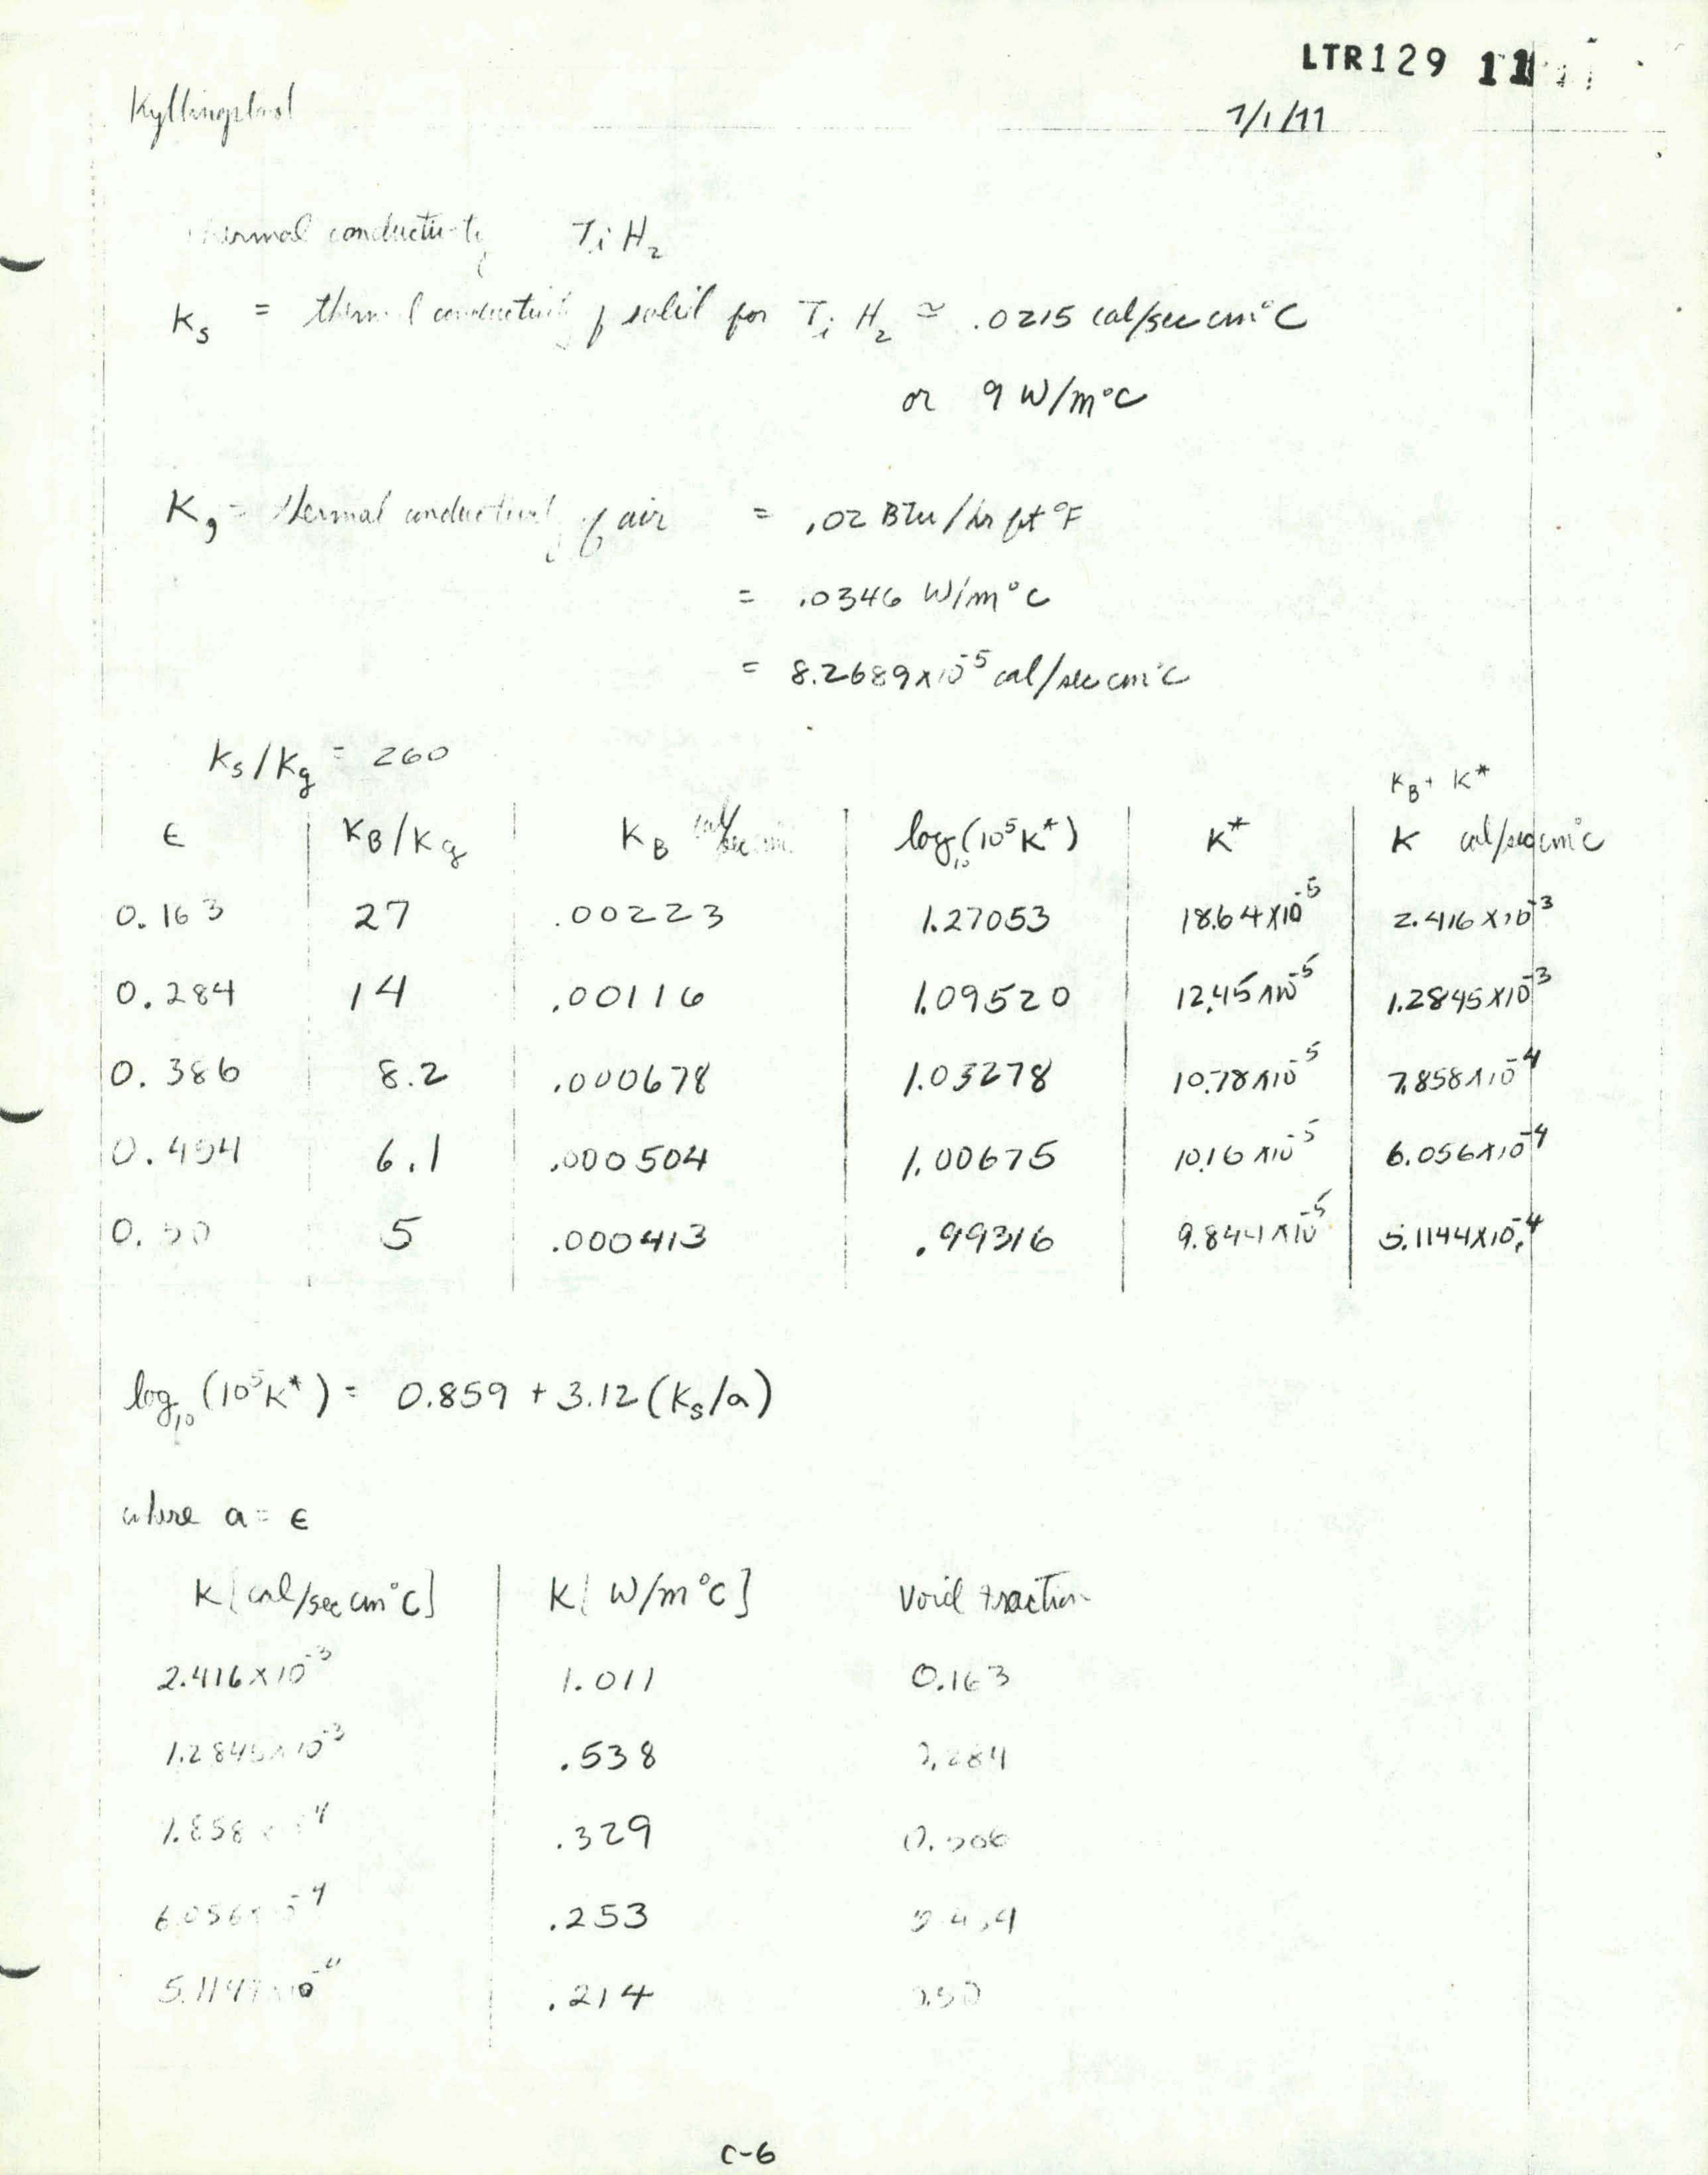 LTR129 11
7/1/77
thermal conductivity TiH₂
Ks = thermal conductivity of solid for TiH₂ ≃ .0215 cal/sec cm°C
or 9 W/m°C
Kg = thermal conductivity of air = .02 BTu/hr ft °F
= .0346 W/m°C
= 8.2689x10⁻⁵ cal/sec cm°C
Ks/Kg = 260
KB + K*
ϵ KB/Kg KB cal/sec cm log₁₀(10⁵K*) K* K cal/sec cm°C
0.163 27 .00223 1.27053 18.64x10⁻⁵ 2.416x10⁻³
0.284 14 .00116 1.09520 12.45x10⁻⁵ 1.2845x10⁻³
0.386 8.2 .000678 1.03278 10.78x10⁻⁵ 7.858x10⁻⁴
0.454 6.1 .000504 1.00675 10.16x10⁻⁵ 6.056x10⁻⁴
0.50 5 .000413 .99316 9.844x10⁻⁵ 5.1144x10⁻⁴
log₁₀(10⁵K*) = 0.859 + 3.12(Ks/a)
where a = ϵ
K[cal/sec cm°C] K[W/m°C] Void fraction
2.416x10⁻³ 1.011 0.163
1.2845x10⁻³ .538 0.284
7.858x10⁻⁴ .329
6.056x10⁻⁴ .253
5.1144x10⁻⁴ .214 0.50
C-6